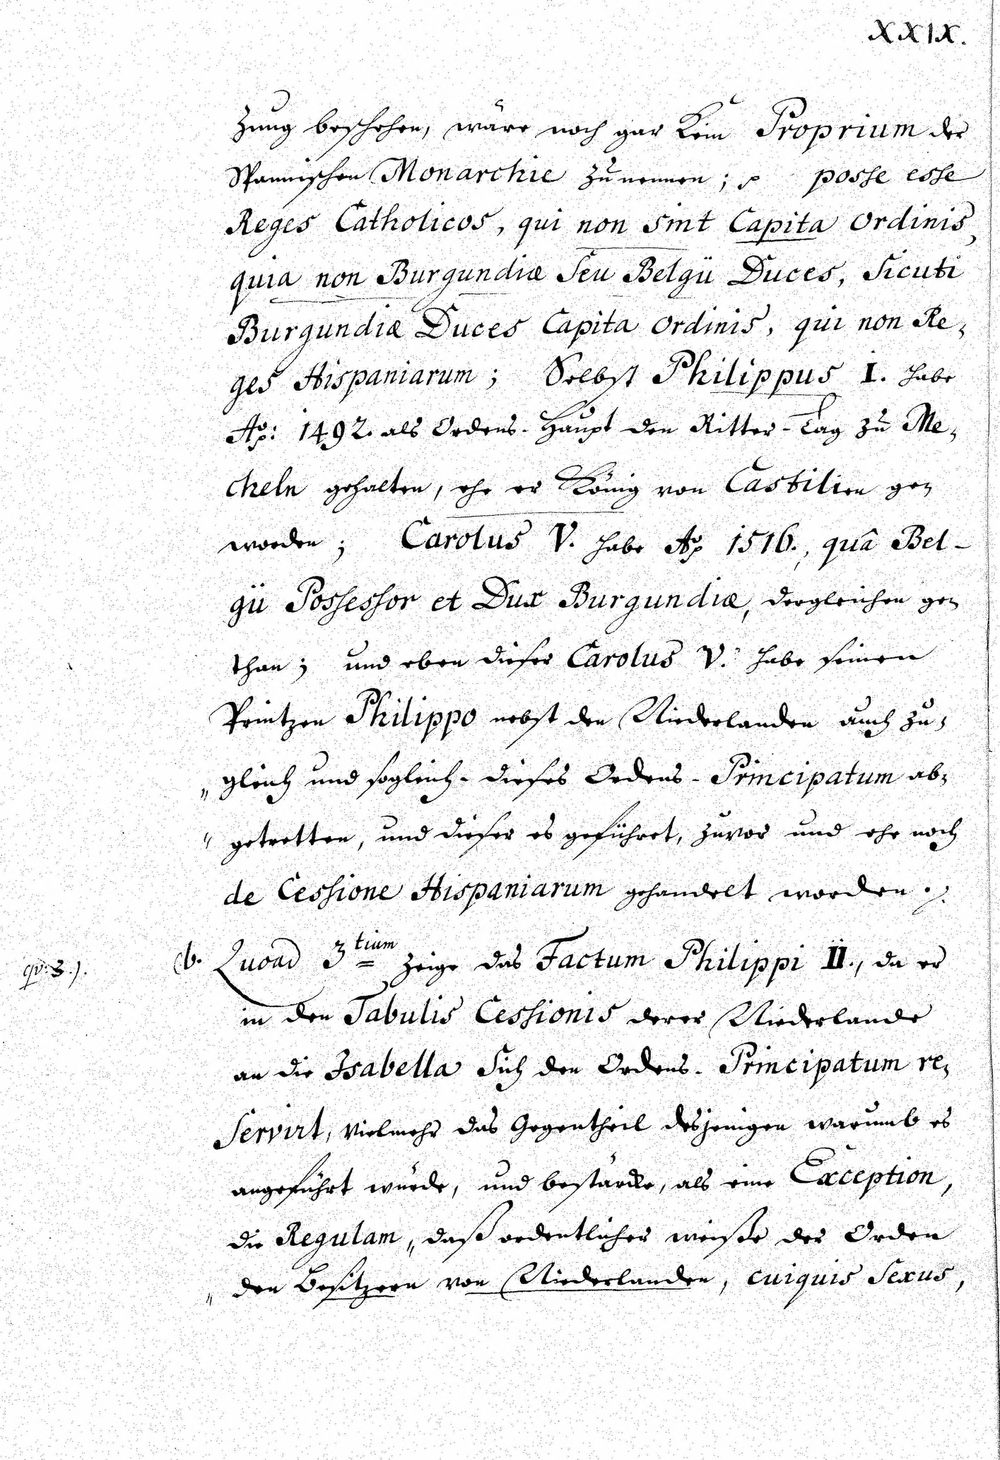 XXIX.
zung beschehen, wäre noch gar kein Proprium der
Spannischen Monarchie zu nennen; posse esse
Reges Catholicos, qui non sint Capita Ordinis,
quia non Burgundiæ seu Belgii Duces, sicuti
Burgundiæ Duces Capita Ordinis, qui non Re,
ges Hispaniarum; Selbst Philippus I. habe
Aº: 1492. als Ordens-Haupt den Ritter-Tag zu Me,
cheln gehalten, ehe er König von Castilien ge,
worden; Carolus V. habe Aº 1516., quâ Bel-
gii Possessor et Dux Burgundiæ, dergleichen ge,
than; und eben dieser Carolus V. habe seinen
Printzen Philippo nebst den Niederlanden auch zu,
„ gleich und sogleich dieses Ordens-Principatum ab,
“ getretten, und dieser es geführet, zuvor und ehe noch
de Cessione Hispaniarum gehandelt worden.
qv: 3.). (b. Quoad 3tium zeige das Factum Philippi II., da er
in den Tabulis Cessionis derer Niederlande
an die Isabella Sich den Ordens-Principatum re,
servirt, vielmehr das Gegentheil desjenigen warumb es
angeführt würde, und bestärcke, als eine Exception,
die Regulam, „daß ordentlicher weiße der Orden
„ den Besitzern von Niederlanden, cuiquis Sexus,